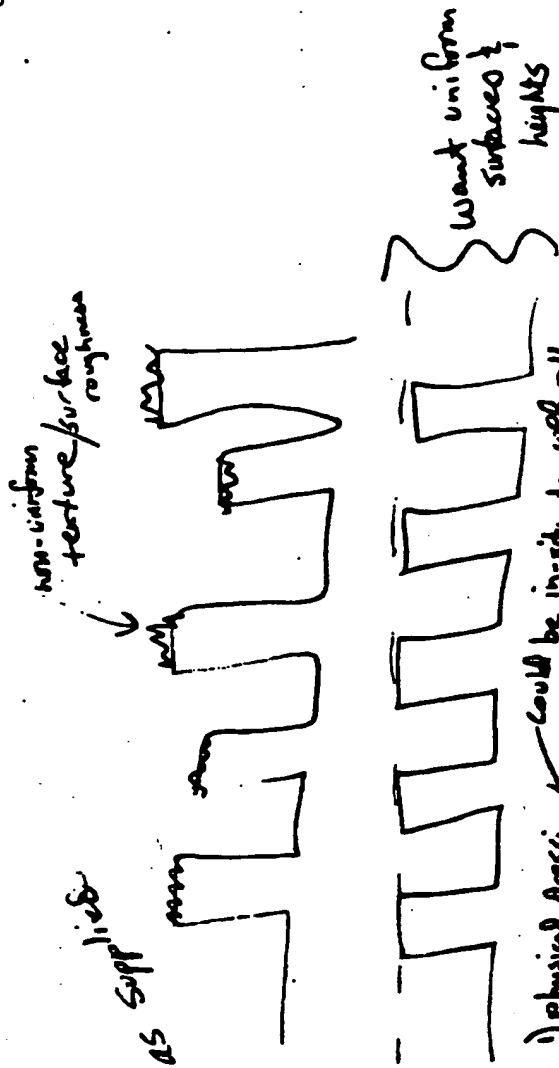 as supplied
non-uniform
texture/surface
roughness
want uniform
surfaces &
heights
1) physical dressing could be in-situ